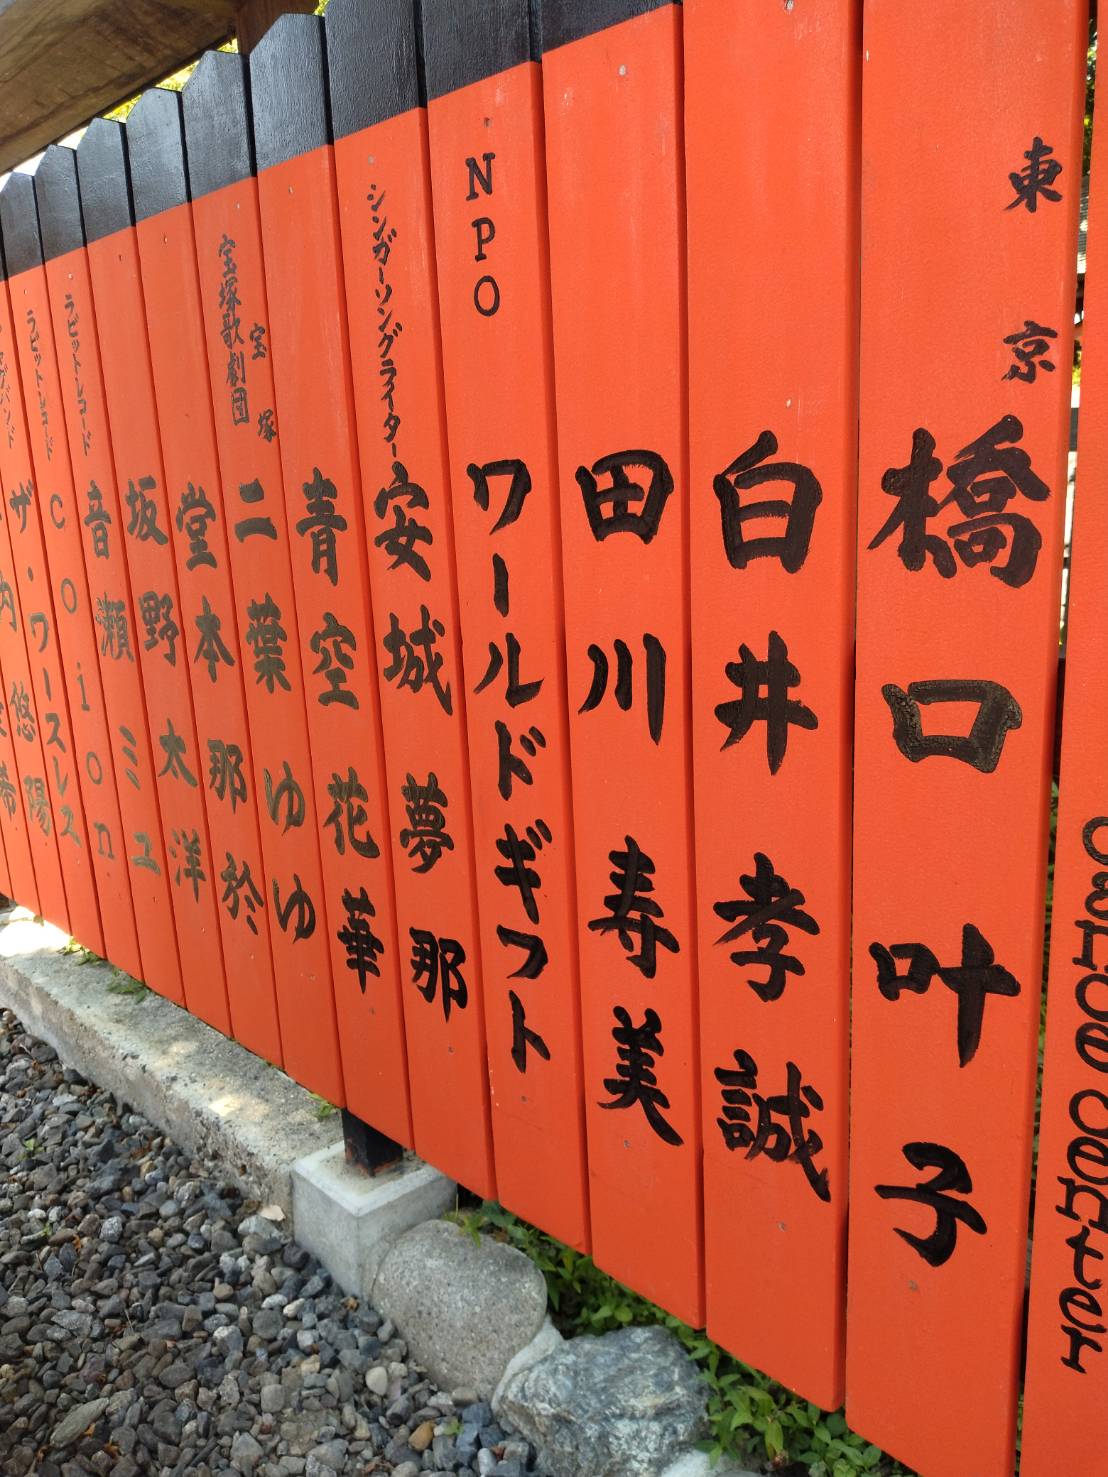 東京 橋口叶子
白井孝誠
田川寿美
NPO ワールドギフト
シンガーソングライター 安城夢那
青空花華
宝塚 二葉ゆゆ
宝塚歌劇団 堂本那於
坂野太洋
音瀬ミュ
ラビットレコード coion
ラビットレコード ザ・ワースレス
悠陽